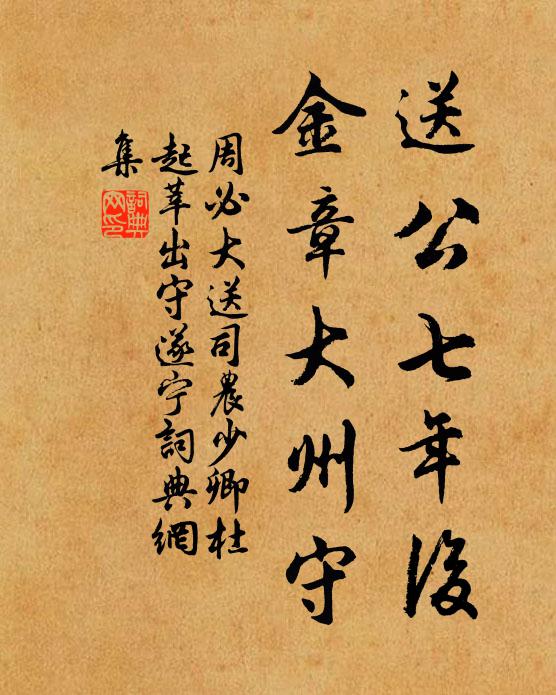 送公七年後
金章大州守
周必大送司農少卿杜
起莘出守遂宁詞典網
集
詞典
网印